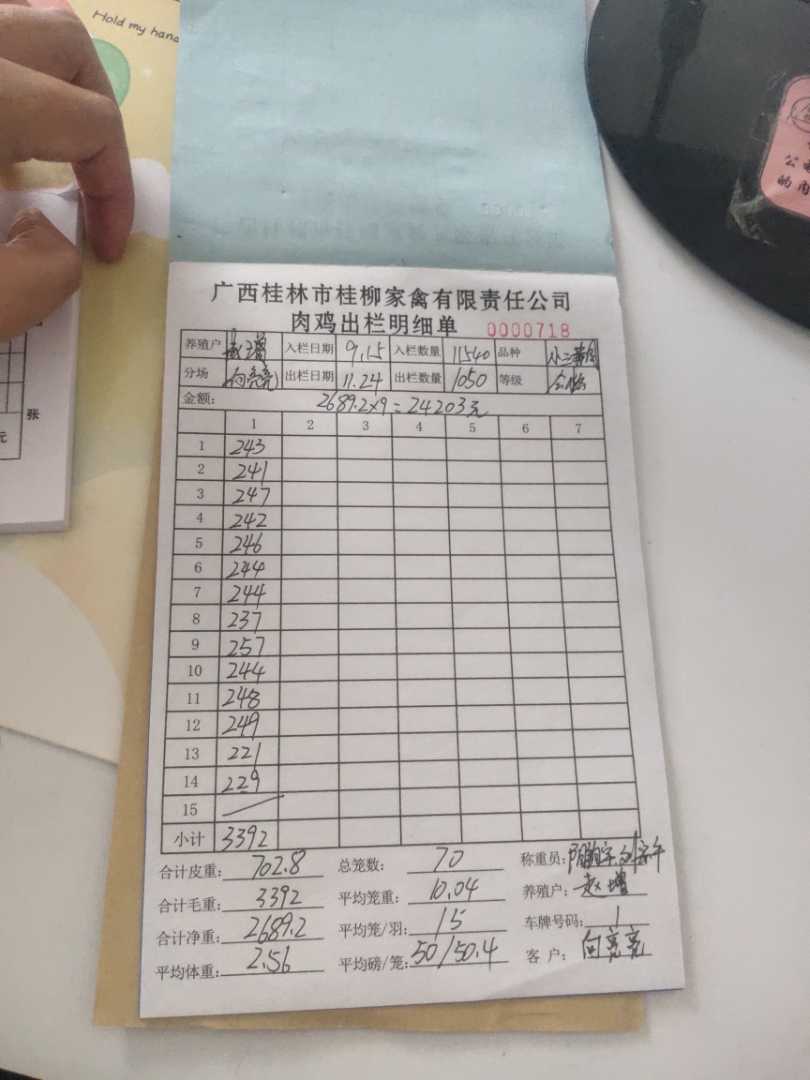 Hold my hand
公
的
张
元
广西桂林市桂柳家禽有限责任公司
肉鸡出栏明细单 0000718
养殖户 赵增 入栏日期 9.15 入栏数量 11540 品种
分场 向亮亮 出栏日期 11.24 出栏数量 1050 等级
金额: 2689.2×9=24203元
1 2 3 4 5 6 7
1 243
2 241
3 247
4 242
5 246
6 244
7 244
8 237
9 257
10 244
11 248
12 249
13 221
14 229
15
小计 3392
合计皮重: 702.8 总笼数: 70 称重员:
合计毛重: 3392 平均笼重: 10.04 养殖户: 赵增
合计净重: 2689.2 平均笼/羽: 15 车牌号码: 1
平均体重: 2.56 平均磅/笼: 50/50.4 客户: 向亮亮